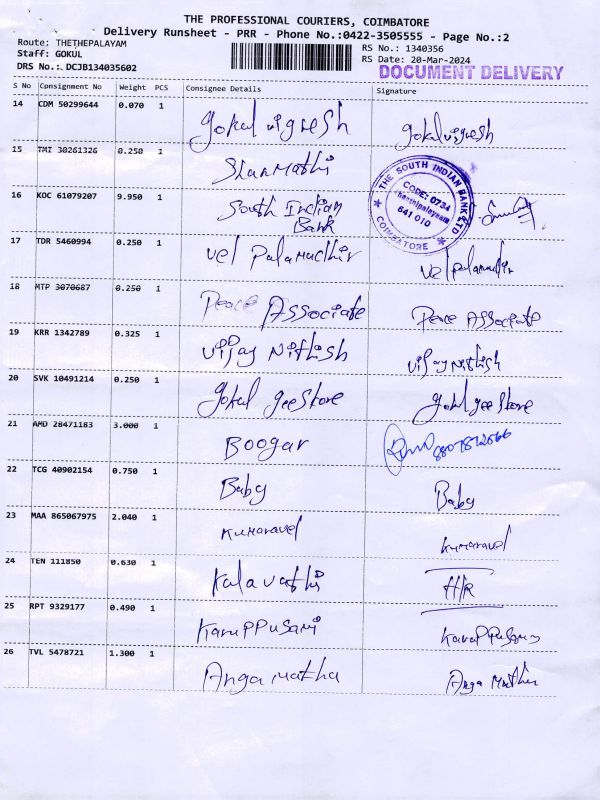 THE PROFESSIONAL COURIERS, COIMBATORE
Delivery Runsheet - PRR - Phone No.:0422-3505555 - Page No.:2
Route: THETHEPALAYAM
Staff: GOKUL
DRS No.: DCJB134035602
RS No.: 1340356
RS Date: 20-Mar-2024
DOCUMENT DELIVERY
S No Consignment No Weight PCS Consignee Details Signature
14 CDM 50299644 0.070 1 Gokul vignesh Gokul vignesh
15 TMI 30261326 0.250 1 Shanmathi
16 KOC 61079207 9.950 1 South Indian Bank
THE SOUTH INDIAN BANK LTD
CODE: 0734
641 010
COIMBATORE
17 TDR 5460994 0.250 1 Vel Palamudhir Vel Palamudir
18 MTP 3070687 0.250 1 Peace Associate Peace Associate
19 KRR 1342789 0.325 1 Vijay Nithish Vijay Nithish
20 SVK 10491214 0.250 1 Gokul gee Store Gokul gee Store
21 AMD 28471183 3.000 1 Boogar
22 TCG 40902154 0.750 1 Baby Baby
23 MAA 865067975 2.040 1 Kumaravel Kumaravel
24 TEN 111850 0.630 1 Kalavathi H/R
25 RPT 9329177 0.490 1 Karuppusami Karuppusami
26 TVL 5478721 1.300 1 Angamatha Anga Matha